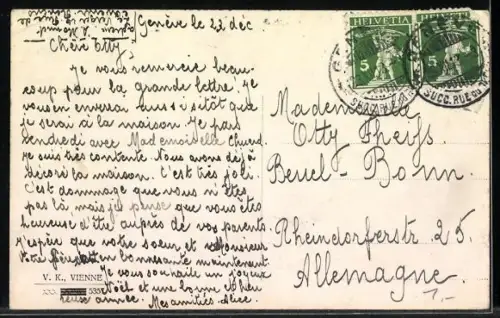 Genève le 23 déc.
Chère Etty,
Je vous remercie beau-
coup pour la grande lettre! Je
vous en enverai aussi sitôt que
je serai à la maison. Je pars
vendredi avec Mademoiselle
je suis très contente. Nous avons déjà
décoré la maison. C'est très joli.
C'est dommage que vous n'êtes
pas là, mais je pense que vous êtes
heureuse d'être auprès de vos parents.
J'espère que votre soeur et Monsieur
votre père sont en bonne santé maintenant.
Je vous souhaite un joyeux
Noël et une bonne et heu
reuse année. Mes amitiés Alice.
V. K., VIENNE
XXX
HELVETIA
HELVETIA
5
5
SUCC. RUE DU
Mademoiselle
Etty Theiss
Bessel-Bonn.
Rheindorferstr. 25
Allemagne.
1,-